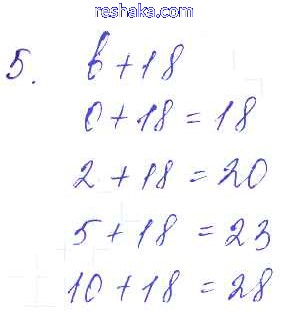 reshaka.com
5. b + 18
0 + 18 = 18
2 + 18 = 20
5 + 18 = 23
10 + 18 = 28